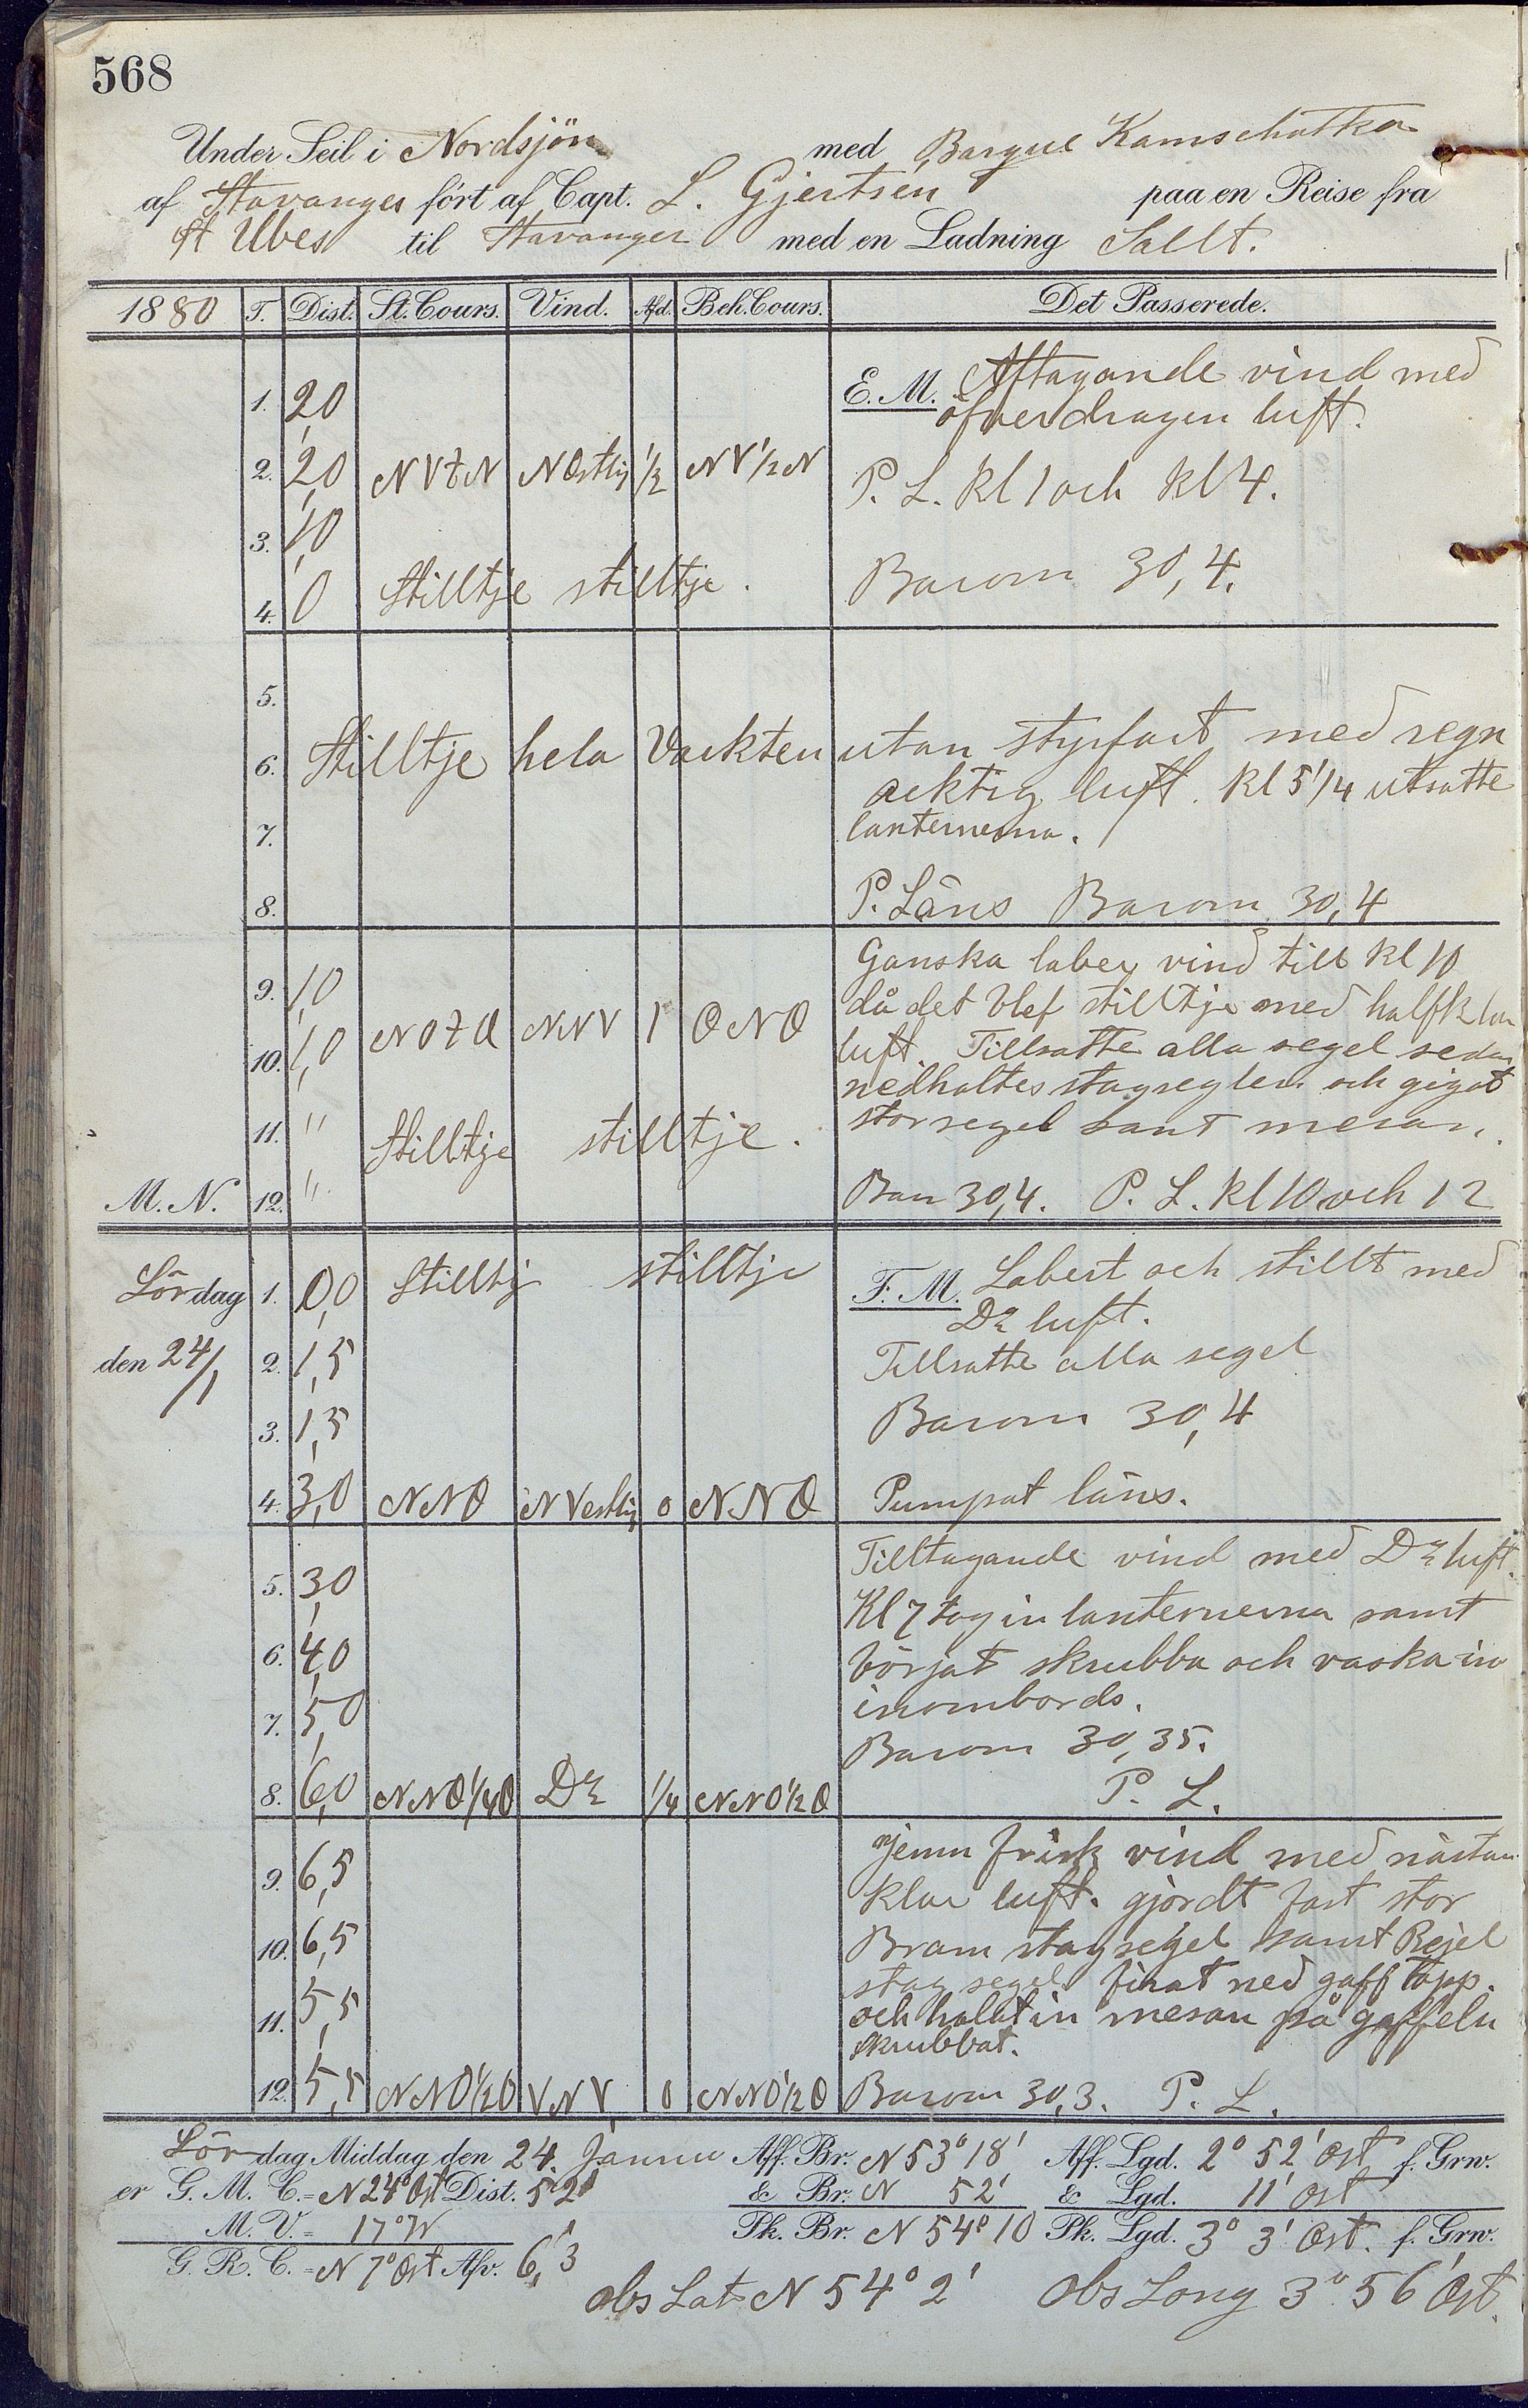 568
Under Seil i Nordsjön med Barque Kamschatka
af Stavanger fört af Capt. L. Gjertsen paa en Reise fra
St Ubes til Stavanger med en Ladning Sallt.
1880 T. Dist. St. Cours. Vind. Afd. Beh. Cours. Det Passerede.
E. M. Aftagande vind med
1. 2,0 öfverdragen luft.
2. 2,0 NVtN NOstlig 1/2 NV 1/2 N P. L. Kl 1 och Kl 4.
3. 1,0
4. 0 Stilltje stilltje. Barom 30,4.
5.
6. Stilltje hela Vackten utan styrfart med regn
acktig luft. Kl 5 1/4 utsatte
7. lanternerna.
8. P. Läns Barom 30,4
Ganska laber vind till Kl 10
9. 1,0 då det blef stilltje med halfklar
10. 1,0 NOtO NNV 1 ONO luft. Tillsatte alla segel sedan
nedhaltes stagseglen och gigat
11. " Stilltje stilltje. storsegel samt mesan.
M. N. 12. " Bar 30,4. P. L. Kl 10 och 12
Lördag 1. 0,0 Stilltj stilltje F. M. Labert och stillt med
Do luft.
den 24/1 2. 1,5 Tillsatte alla segel
3. 1,5 Barom 30,4
4. 3,0 NNO NVestlig 0 NNO Pumpat läns.
Tilltagande vind med Do luft.
5. 3,0 Kl 7 tog in lanternerna samt
6. 4,0 börjat skrubba och vaska in
7. 5,0 inombords.
Barom 30,35.
8. 6,0 NNO 1/4 O Do 1/4 NNO 1/2 O P. L.
Jemn frisk vind med nästan
9. 6,5 klar luft. gjordt fast stor
10. 6,5 Bram stagsegel samt Rejel
stag segel firat ned gaff topp.
11. 5,5 och halat in mesan på gaffeln
skrubbat.
12. 5,5 NNO 1/2 O VNV 0 NNO 1/2 O Barom 30,3. P. L.
Lördag Middag den 24. Januu Aff. Br. N 53° 18' Aff. Lgd. 2° 52' Ost f. Grw.
er G. M. C. = N 24° Ost Dist. 52' & Br. N 52' & Lgd. 11' Ost
M. V. = 17° W Pk. Br. N 54° 10 Pk. Lgd. 3° 3' Ost. f. Grw.
G. R. C. = N 7° Ost Afv. 6,3
obs Lat N 54° 2' Obs Long 3° 56' Ost.